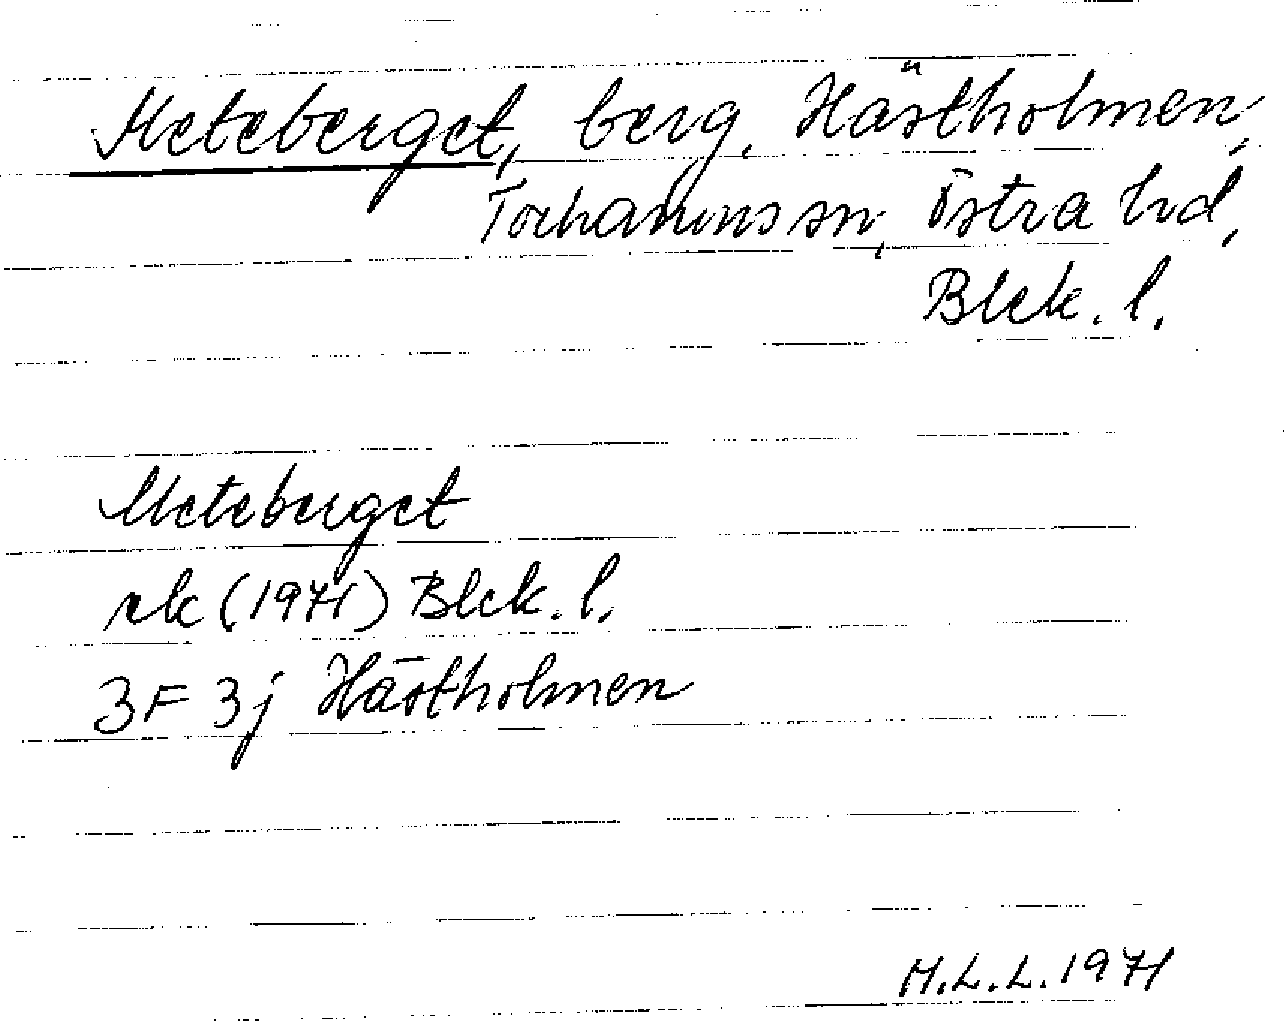 Meteberget, berg, Hästholmen,
Torhamns sn, Östra hd,
Blek. l.
Meteberget
rek (1971) Blek. l.
3F 3j Hästholmen
M.L.L. 1971